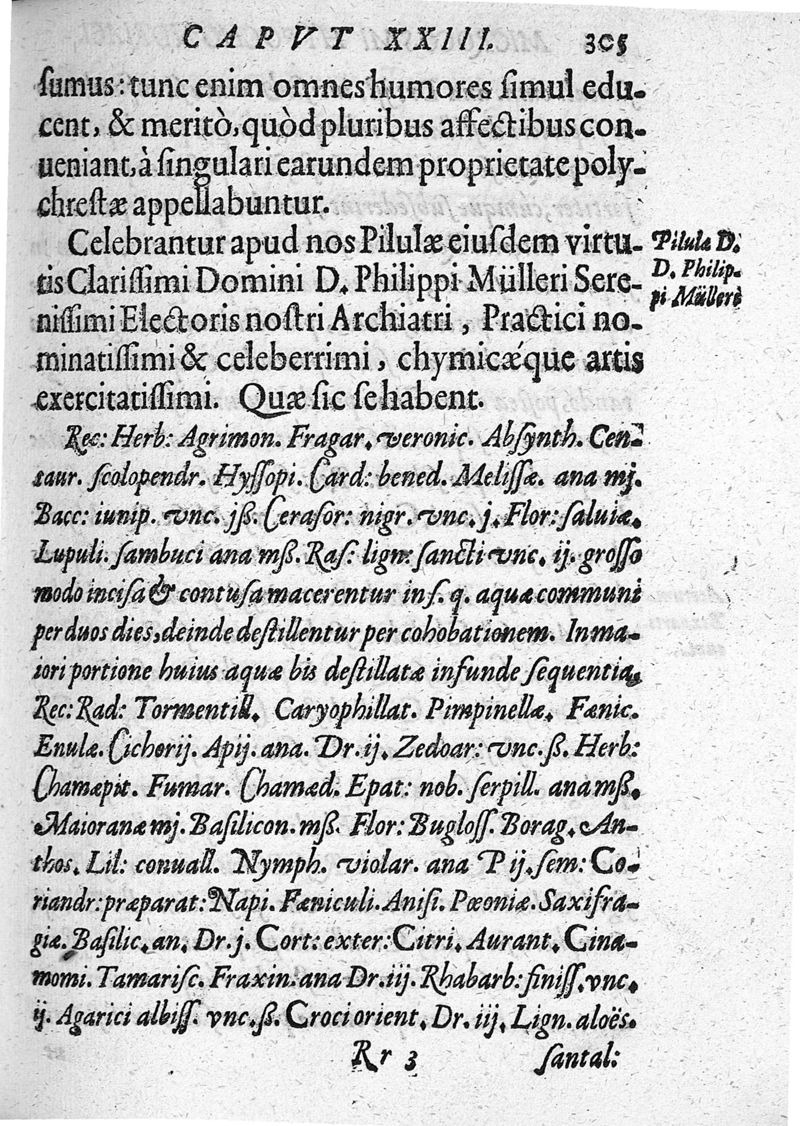 CAPVT XXIII. 305
ſumus: tunc enim omnes humores ſimul edu-
cent, & meritò, quòd pluribus affectibus con-
ueniant, à ſingulari earundem proprietate poly-
chreſtæ appellabuntur.
Celebrantur apud nos Pilulæ eiuſdem virtu-
tis Clariſſimi Domini D. Philippi Mülleri Sere-
niſſimi Electoris noſtri Archiatri, Practici no-
minatiſſimi & celeberrimi, chymicæque artis
exercitatiſſimi. Quæ ſic ſe habent.
Pilulæ D.
D. Philip-
pi Mülleri
Rec: Herb: Agrimon. Fragar. veronic. Abſynth. Cen-
taur. ſcolopendr. Hyſſopi. Card: bened. Meliſſæ. ana mj.
Bacc: iunip. vnc. jß. Ceraſor: nigr. vnc. j. Flor: ſaluiæ.
Lupuli. ſambuci ana mß. Raſ: lign: ſancti vnc. ij. groſſo
modo inciſa & contuſa macerentur in ſ. q. aquæ communi
per duos dies, deinde deſtillentur per cohobationem. In ma-
iori portione huius aquæ bis deſtillatæ infunde ſequentia.
Rec: Rad: Tormentill. Caryophillat. Pimpinellæ. Fænic.
Enulæ. Cichorij. Apij. ana. Dr. ij. Zedoar: vnc. ß. Herb:
Chamæpit. Fumar. Chamæd. Epat: nob. ſerpill. ana mß.
Maioranæ mj. Baſilicon. mß. Flor: Bugloſſ. Borag. An-
thos. Lil: conuall. Nymph. violar. ana P ij. ſem: Co-
riandr: præparat: Napi. Fæniculi. Aniſi. Pœoniæ. Saxifra-
giæ. Baſilic. an. Dr. j. Cort: exter: Citri. Aurant. Cina-
momi. Tamariſc. Fraxin. ana Dr. iij. Rhabarb: finiſſ. vnc.
ij. Agarici albiſſ. vnc. ß. Croci orient. Dr. iij. Lign. aloës.
Rr 3 ſantal: